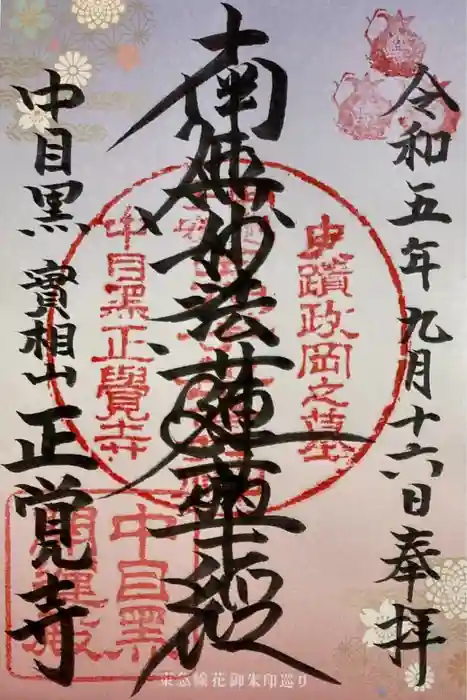 令和五年九月十六日奉拝
南無妙法蓮華経
中目黒 實相山 正覚寺
史蹟政岡之墓
中目黒正覺寺
中目黒
開運殿
東急線花御朱印巡り